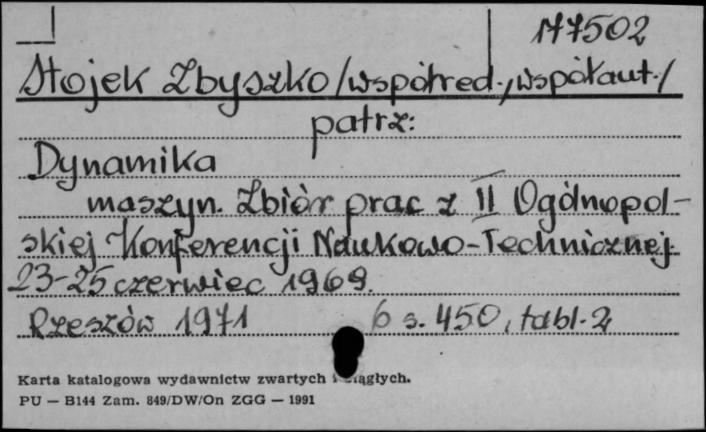 177502
Stojek Zbyszko /współred., współaut./
patrz:
Dynamika
maszyn. Zbiór prac z II Ogólnopol-
skiej Konferencji Naukowo-Technicznej
23-25 czerwiec 1969.
Rzeszów 1971 6 s. 450, tabl. 2
Karta katalogowa wydawnictw zwartych i ciągłych.
PU — B144 Zam. 849/DW/On ZGG — 1991